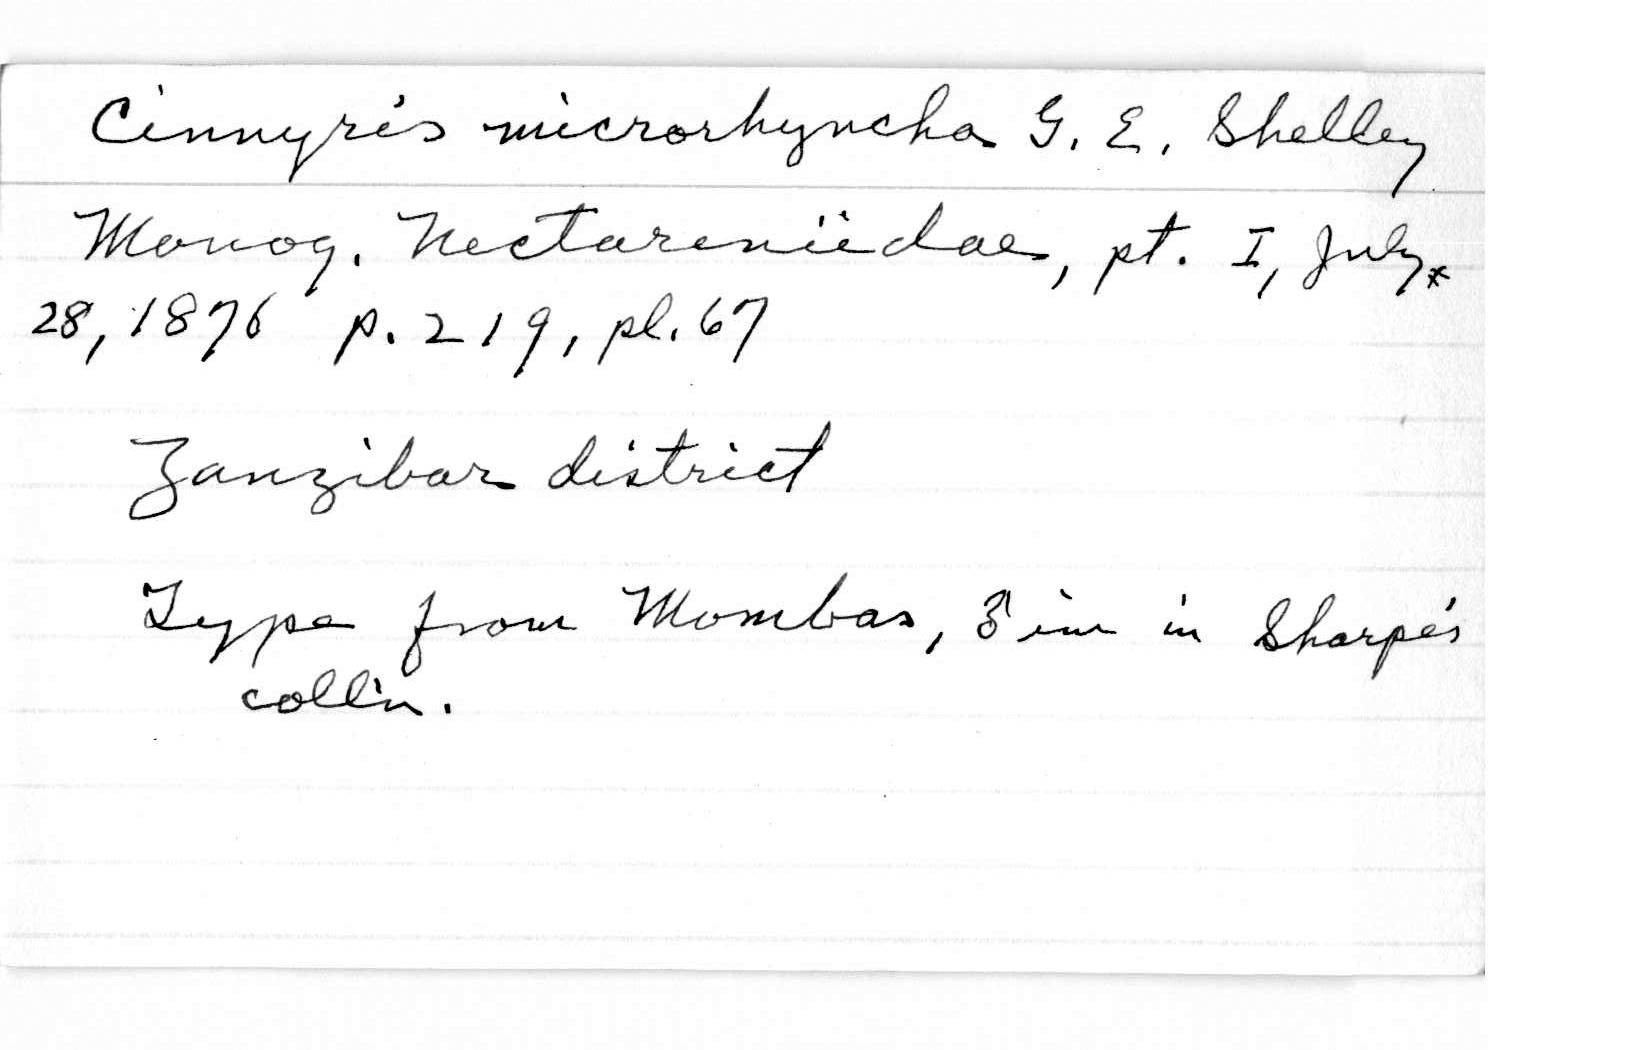 Cinnyris microrhyncha G. E. Shelley
Monog. Nectareniidae, pt. I, July*
28, 1876 p. 219, pl. 67
Zanzibar district
Type from Mombas, ♂ im in Sharpe's
coll'n.